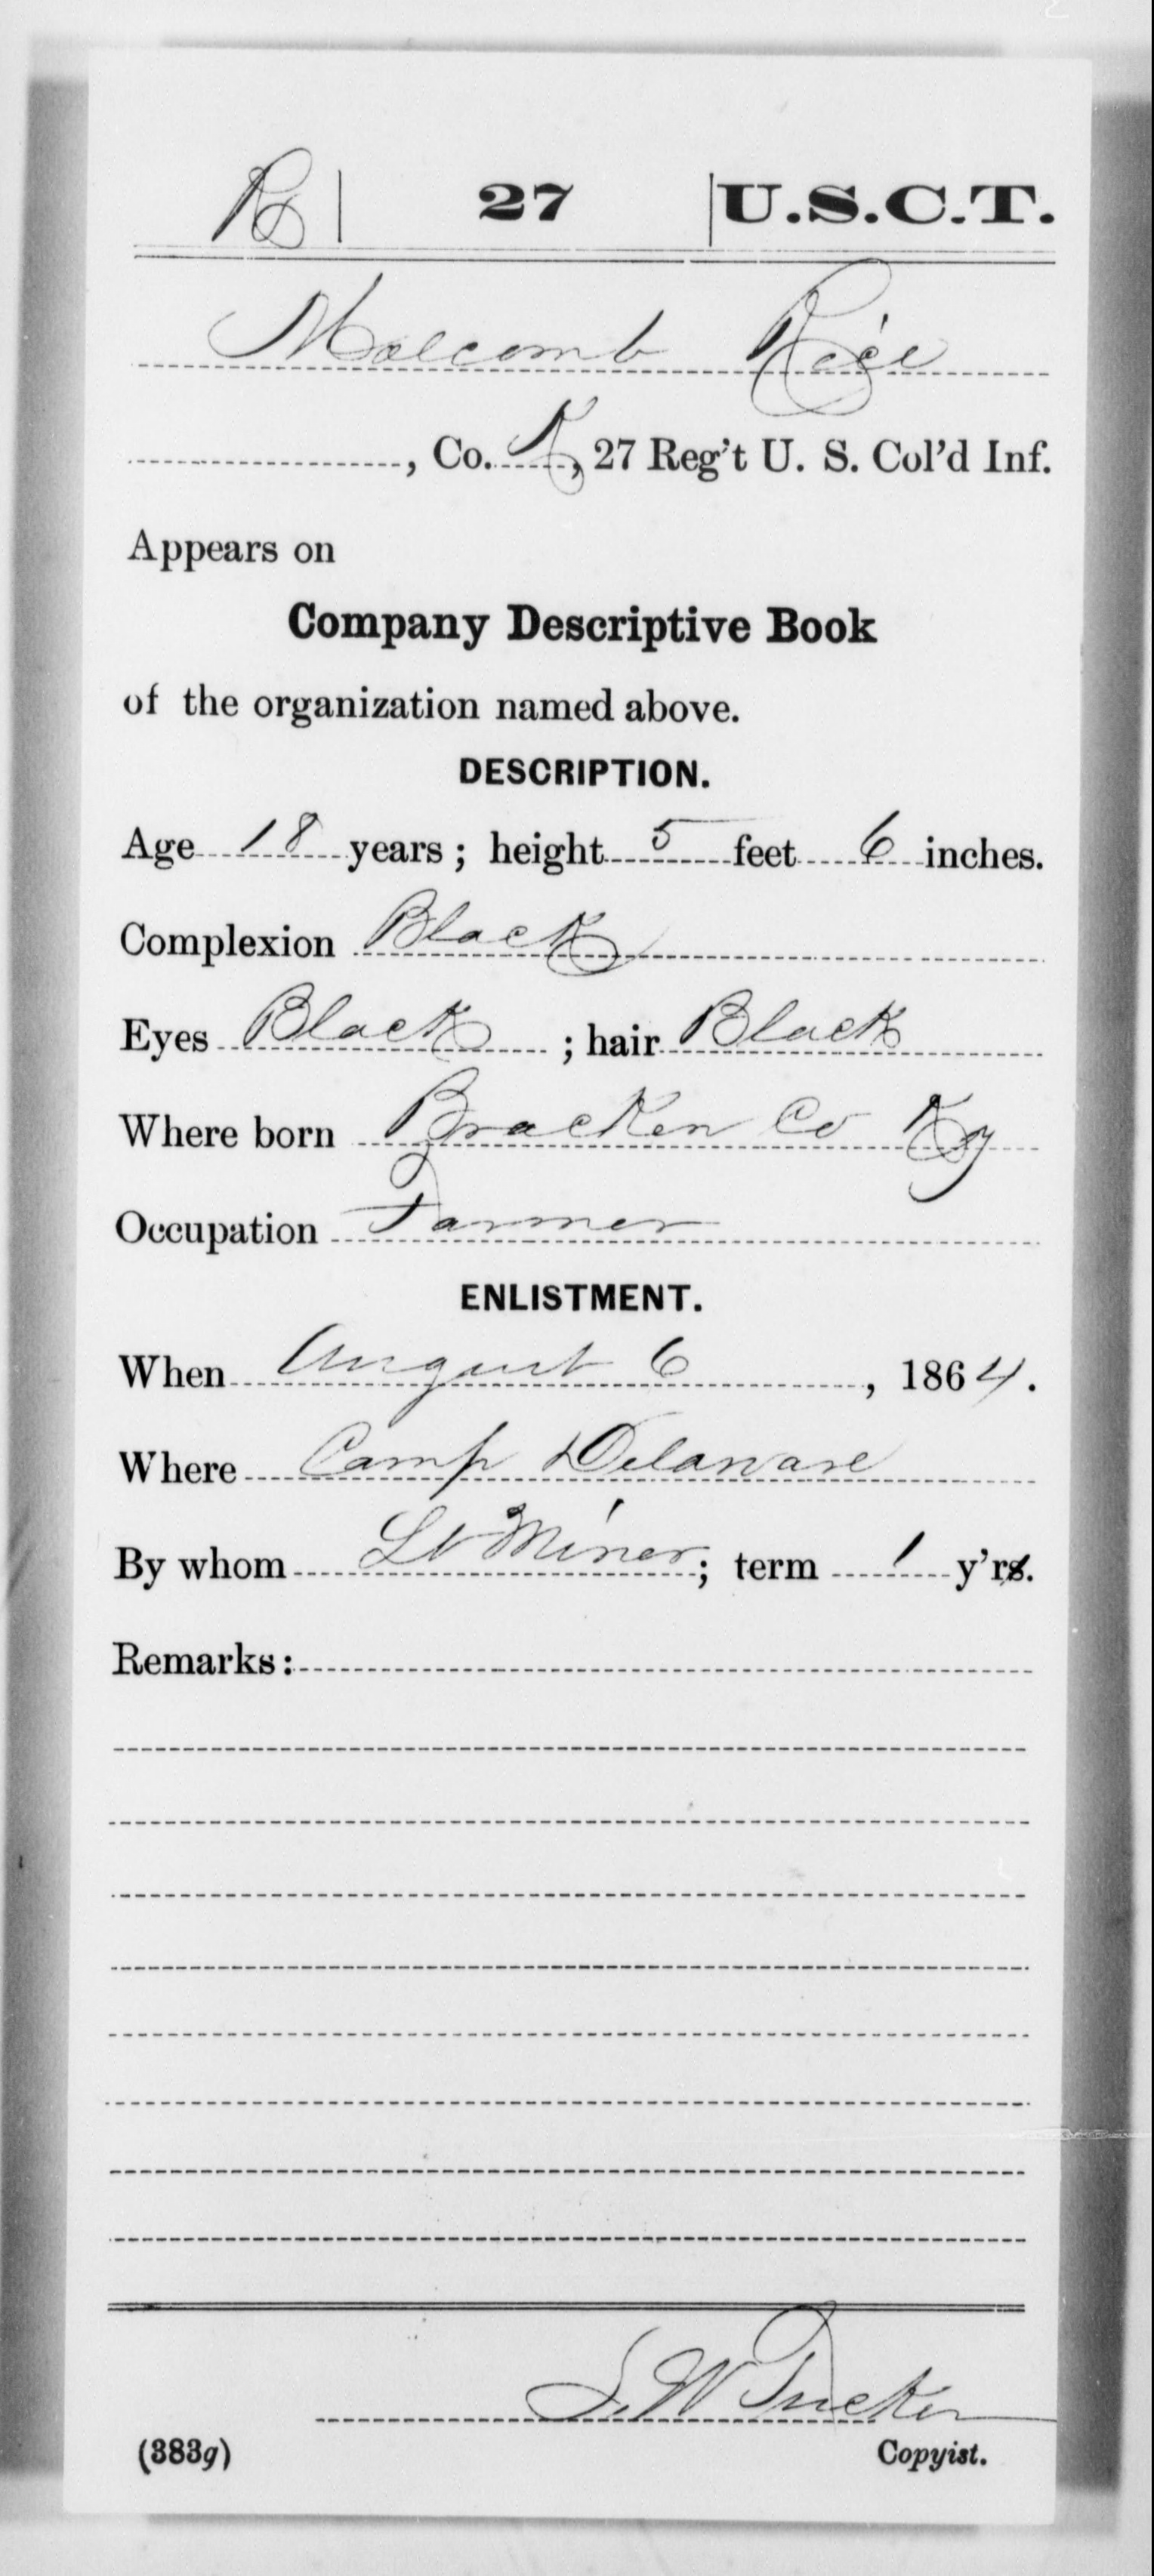 R | 27 | U.S.C.T.
Malcomb Rice
, Co. K, 27 Reg't U. S. Col'd Inf.
Appears on
Company Descriptive Book
of the organization named above.
DESCRIPTION.
Age 18 years; height 5 feet 6 inches.
Complexion Black
Eyes Black ; hair Black
Where born Bracken Co Ky
Occupation Farmer
ENLISTMENT.
When August 6, 1864.
Where Camp Delaware
By whom Lt Miner; term 1 y'rs.
Remarks:
S. W. Tucker
(383g) Copyist.